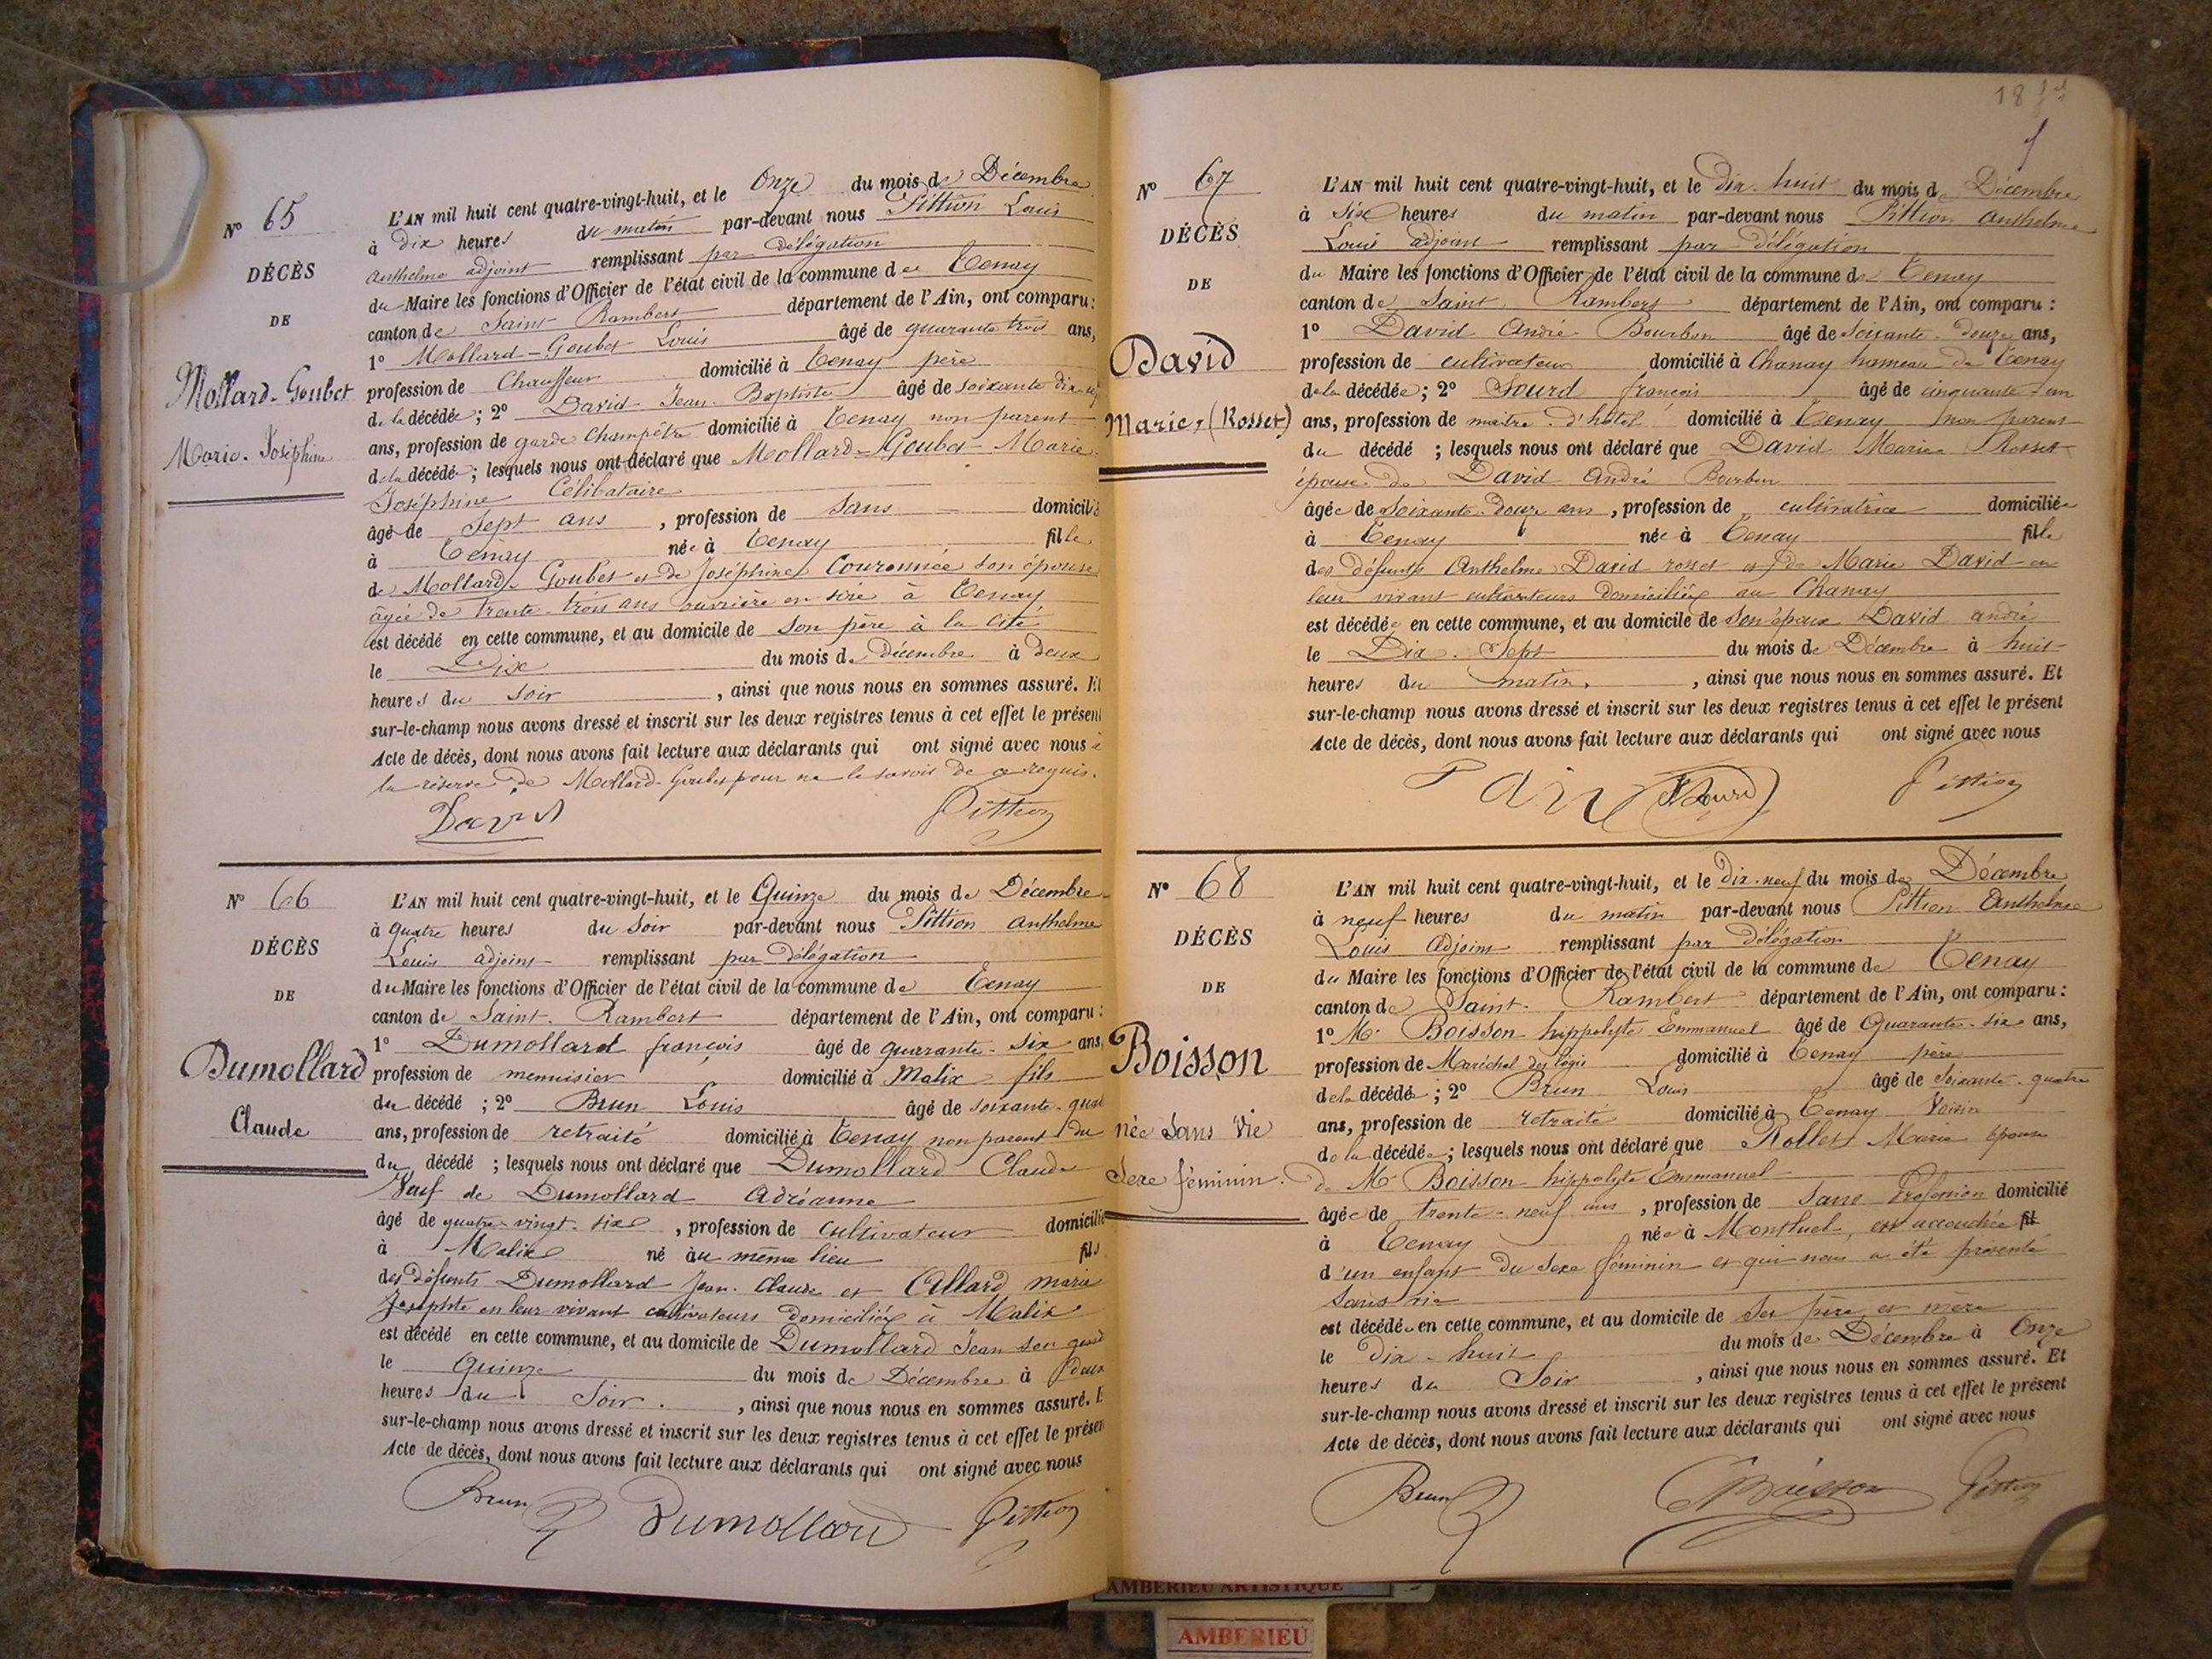 N° 65
DÉCÈS
DE
Mollard-Goubet
Marie-Joséphine
L'AN mil huit cent quatre-vingt-huit, et le Onze du mois de Décembre
à dix heures du matin par-devant nous Pittion Louis
Anthelme adjoint remplissant par délégation
du Maire les fonctions d'Officier de l'état civil de la commune de Tenay
canton de Saint Rambert département de l'Ain, ont comparu :
1° Mollard-Goubet Louis âgé de quarante trois ans,
profession de Chauffeur domicilié à Tenay père
de la décédée ; 2° David Jean-Baptiste âgé de soixante dix
ans, profession de garde Champêtre domicilié à Tenay non parent
de la décédée ; lesquels nous ont déclaré que Mollard-Goubet Marie
Joséphine Célibataire
âgée de Sept ans, profession de Sans domicilié
à Tenay née à Tenay fille
de Mollard-Goubet et de Joséphine Couronnée son épouse
âgée de trente-trois ans ouvrière en soie à Tenay
est décédé en cette commune, et au domicile de son père à la Cité
le Dix du mois de Décembre à deux
heures du soir, ainsi que nous nous en sommes assuré. Et
sur-le-champ nous avons dressé et inscrit sur les deux registres tenus à cet effet le présent
Acte de décès, dont nous avons fait lecture aux déclarants qui ont signé avec nous à
la réserve de Mollard-Goubet pour ne le savoir de ce requis.
David Pittion
N° 66
DÉCÈS
DE
Dumollard
Claude
L'AN mil huit cent quatre-vingt-huit, et le Quinze du mois de Décembre
à quatre heures du Soir par-devant nous Pittion Anthelme
Louis adjoint remplissant par délégation
du Maire les fonctions d'Officier de l'état civil de la commune de Tenay
canton de Saint-Rambert département de l'Ain, ont comparu :
1° Dumollard françois âgé de quarante-six ans,
profession de menuisier domicilié à Malix fils
du décédé ; 2° Brun Louis âgé de soixante-quat
ans, profession de retraité domicilié à Tenay non parent du
du décédé ; lesquels nous ont déclaré que Dumollard Claude
Veuf de Dumollard Adréanne
âgé de quatre-vingt-six, profession de Cultivateur domicilié
à Malix né au même lieu fils
des défunts Dumollard Jean-Claude et Allard marie
Josephte en leur vivant cultivateurs domiciliés à Malix
est décédé en cette commune, et au domicile de Dumollard Jean son
le Quinze du mois de Décembre à Deux
heures du Soir., ainsi que nous nous en sommes assuré. E
sur-le-champ nous avons dressé et inscrit sur les deux registres tenus à cet effet le présen
Acte de décès, dont nous avons fait lecture aux déclarants qui ont signé avec nous
Brun Dumollard Pittion
18
N° 67
DÉCÈS
DE
David
Marie, (Rosset)
L'AN mil huit cent quatre-vingt-huit, et le dix-huit du mois de Décembre
à Six heures du matin par-devant nous Pittion Anthelme
Louis adjoint remplissant par délégation
du Maire les fonctions d'Officier de l'état civil de la commune de Tenay
canton de Saint Rambert département de l'Ain, ont comparu :
1° David André Bourbon âgé de Soixante-douze ans,
profession de cultivateur domicilié à Chanay hameau de Tenay
de la décédée ; 2° Sourd françois âgé de cinquante-un
ans, profession de maître-d'hôtel domicilié à Tenay non parent
du décédé ; lesquels nous ont déclaré que David Marie Rosset
épouse de David André Bourbon
âgée de Soixante-douze ans, profession de cultivatrice domiciliée
à Tenay née à Tenay fille
des défunts Anthelme David rosset et de Marie David en
leur vivant cultivateurs domiciliés au Chanay
est décédée en cette commune, et au domicile de son époux David andré
le Dix-Sept du mois de Décembre à huit
heures du matin, ainsi que nous nous en sommes assuré. Et
sur-le-champ nous avons dressé et inscrit sur les deux registres tenus à cet effet le présent
Acte de décès, dont nous avons fait lecture aux déclarants qui ont signé avec nous
Sourd Pittion
N° 68
DÉCÈS
DE
Boisson
née Sans Vie
Sexe féminin.
L'AN mil huit cent quatre-vingt-huit, et le dix-neuf du mois de Décembre
à neuf heures du matin par-devant nous Pittion Anthelme
Louis Adjoint remplissant par délégation
du Maire les fonctions d'Officier de l'état civil de la commune de Tenay
canton de Saint-Rambert département de l'Ain, ont comparu :
1° Mr Boisson hippolyte Emmanuel âgé de Quarante-six ans,
profession de Maréchal des logis domicilié à Tenay père
de la décédée ; 2° Brun Louis âgé de Soixante-quatre
ans, profession de retraité domicilié à Tenay Voisin
de la décédée ; lesquels nous ont déclaré que Rollet Marie épouse
de Mr Boisson hippolyte Emmanuel
âgée de trente-neuf ans, profession de Sans Profession domicilié
à Tenay née à Montluel, est accouchée fil
d'un enfant du Sexe féminin et qui nous a été présenté
Sans vie
est décédée en cette commune, et au domicile de Ses père et mère
le Dix-huit du mois de Décembre à Onze
heures du Soir, ainsi que nous nous en sommes assuré. Et
sur-le-champ nous avons dressé et inscrit sur les deux registres tenus à cet effet le présent
Acte de décès, dont nous avons fait lecture aux déclarants qui ont signé avec nous
Brun Boisson Pittion
AMBERIEU ARTISTIQUE
AMBERIEU